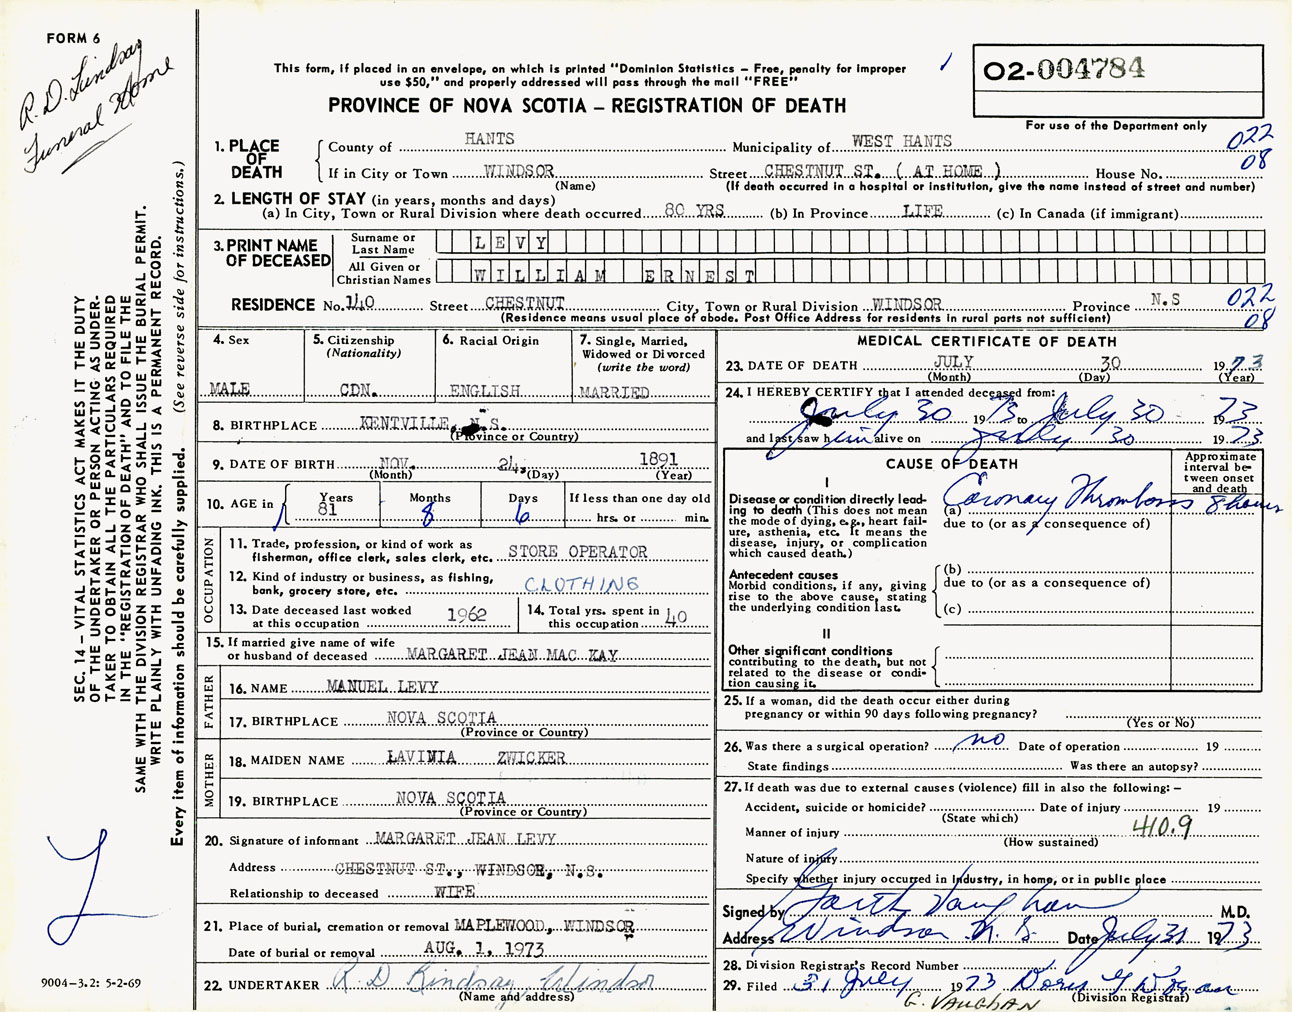 FORM 6
R. D. Lindsay
Funeral Home
This form, if placed in an envelope, on which is printed "Dominion Statistics – Free, penalty for improper
use $50," and properly addressed will pass through the mail "FREE"
PROVINCE OF NOVA SCOTIA – REGISTRATION OF DEATH
02-004784
For use of the Department only
1. PLACE OF DEATH
County of HANTS Municipality of WEST HANTS 022
If in City or Town WINDSOR Street CHESTNUT ST. ( AT HOME ) House No. 08
(Name) (If death occurred in a hospital or institution, give the name instead of street and number)
2. LENGTH OF STAY (in years, months and days)
(a) In City, Town or Rural Division where death occurred 80 YRS (b) In Province LIFE (c) In Canada (if immigrant)
3. PRINT NAME OF DECEASED
Surname or Last Name LEVY
All Given or Christian Names WILLIAM ERNEST
RESIDENCE No. 140 Street CHESTNUT City, Town or Rural Division WINDSOR Province N.S 022
(Residence means usual place of abode. Post Office Address for residents in rural parts not sufficient) 08
4. Sex
MALE
5. Citizenship
(Nationality)
CDN.
6. Racial Origin
ENGLISH
7. Single, Married,
Widowed or Divorced
(write the word)
MARRIED
8. BIRTHPLACE KENTVILLE, N.S.
(Province or Country)
9. DATE OF BIRTH NOV. 24, 1891
(Month) (Day) (Year)
10. AGE in Years 81 Months 8 Days 6 If less than one day old
hrs. or min.
OCCUPATION
11. Trade, profession, or kind of work as
fisherman, office clerk, sales clerk, etc. STORE OPERATOR
12. Kind of industry or business, as fishing,
bank, grocery store, etc. CLOTHING
13. Date deceased last worked
at this occupation 1962
14. Total yrs. spent in
this occupation 40
15. If married give name of wife
or husband of deceased MARGARET JEAN MAC KAY
FATHER
16. NAME MANUEL LEVY
17. BIRTHPLACE NOVA SCOTIA
(Province or Country)
MOTHER
18. MAIDEN NAME LAVINIA ZWICKER
19. BIRTHPLACE NOVA SCOTIA
(Province or Country)
20. Signature of informant MARGARET JEAN LEVY
Address CHESTNUT ST., WINDSOR, N.S.
Relationship to deceased WIFE
21. Place of burial, cremation or removal MAPLEWOOD, WINDSOR
Date of burial or removal AUG. 1, 1973
22. UNDERTAKER R D Lindsay, Windsor
(Name and address)
MEDICAL CERTIFICATE OF DEATH
23. DATE OF DEATH JULY 30 1973
(Month) (Day) (Year)
24. I HEREBY CERTIFY that I attended deceased from:
July 30 1973 to July 30 1973
and last saw him alive on July 30 1973
CAUSE OF DEATH
Approximate
interval be-
tween onset
and death
I
Disease or condition directly lead-
ing to death (This does not mean
the mode of dying, e.g., heart fail-
ure, asthenia, etc. It means the
disease, injury, or complication
which caused death.)
(a) Coronary Thrombosis 8 hours
due to (or as a consequence of)
Antecedent causes
Morbid conditions, if any, giving
rise to the above cause, stating
the underlying condition last.
(b)
due to (or as a consequence of)
(c)
II
Other significant conditions
contributing to the death, but not
related to the disease or condi-
tion causing it.
25. If a woman, did the death occur either during
pregnancy or within 90 days following pregnancy?
(Yes or No)
26. Was there a surgical operation? no Date of operation 19
State findings Was there an autopsy?
27. If death was due to external causes (violence) fill in also the following: –
Accident, suicide or homicide? Date of injury 19
(State which)
Manner of injury 410.9
(How sustained)
Nature of injury
Specify whether injury occurred in Industry, in home, or in public place
Signed by Garth Vaughan M.D.
Address Windsor N.S. Date July 31 1973
28. Division Registrar's Record Number
29. Filed 31 July 1973 Doris
G. VAUGHAN (Division Registrar)
SEC. 14 – VITAL STATISTICS ACT MAKES IT THE DUTY
OF THE UNDERTAKER OR PERSON ACTING AS UNDER-
TAKER TO OBTAIN ALL THE PARTICULARS REQUIRED
IN THE "REGISTRATION OF DEATH" AND TO FILE THE
SAME WITH THE DIVISION REGISTRAR WHO SHALL ISSUE THE BURIAL PERMIT.
WRITE PLAINLY WITH UNFADING INK. THIS IS A PERMANENT RECORD.
Every item of information should be carefully supplied. (See reverse side for instructions.)
9004-3.2: 5-2-69